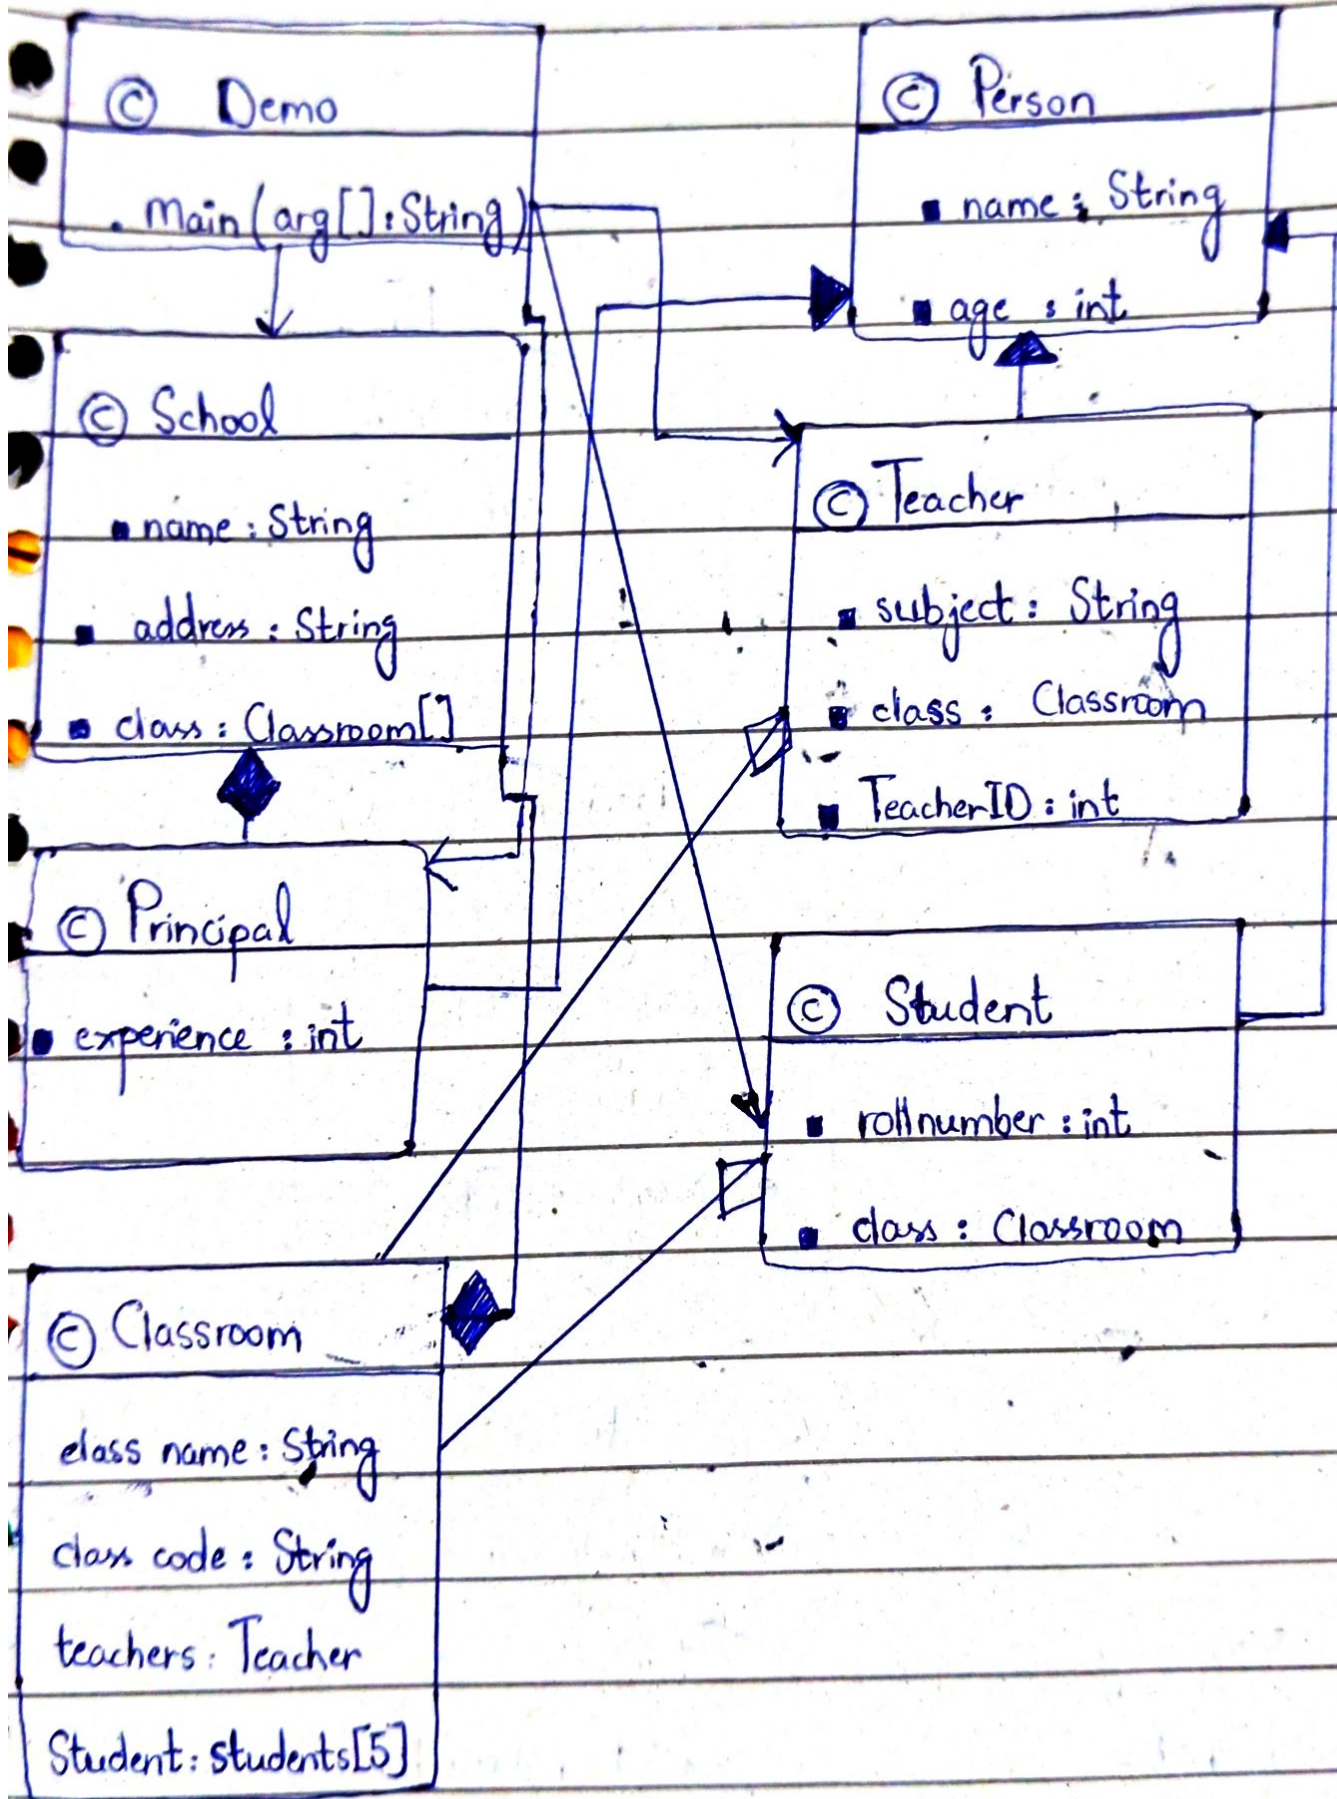 © Demo
. Main(arg[]:String)
© School
▪ name : String
▪ address : String
▪ class : Classroom[]
© Principal
▪ experience : int
© Classroom
class name : String
class code : String
teachers : Teacher
Student : students[5]
© Person
▪ name : String
▪ age : int
© Teacher
▪ subject : String
▪ class : Classroom
▪ TeacherID : int
© Student
▪ rollnumber : int
▪ class : Classroom